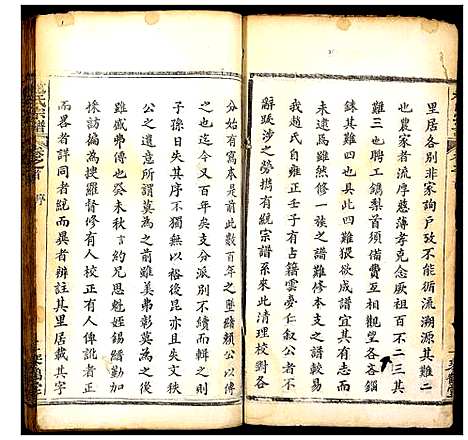 里居各別非家詢戶攷不能流溯源其
也農家者流厚慈薄孝克念厥祖百不二三其
難三也聘工鐫梨首須備費互相觀望各各鎦
銖其難四也具此四難猶欲成譜宜其有志
未遠為難數之譜難修本支之譜難
我趙氏自雍正壬子有占籍雲夢仁叙公者不
辭跋涉之勞擕有統宗譜系來此清理校對各
分始有寫本是前此數百年之墜緒賴公以傳
之也迄今五百年矣支分派別不續而輯之則
子孫日失其序不無以裕後昆亦且失文秩
公之遺意所謂莫為之前雖美弗彰莫為之後
雖盛弗傳也癸未秋言約兄思魁姪錫縉勤加
採訪徧為搜羅督修有人校正有人俾訛者正
而畧者詳同者統而異者辨註其里居載其字
氏宗譜
序